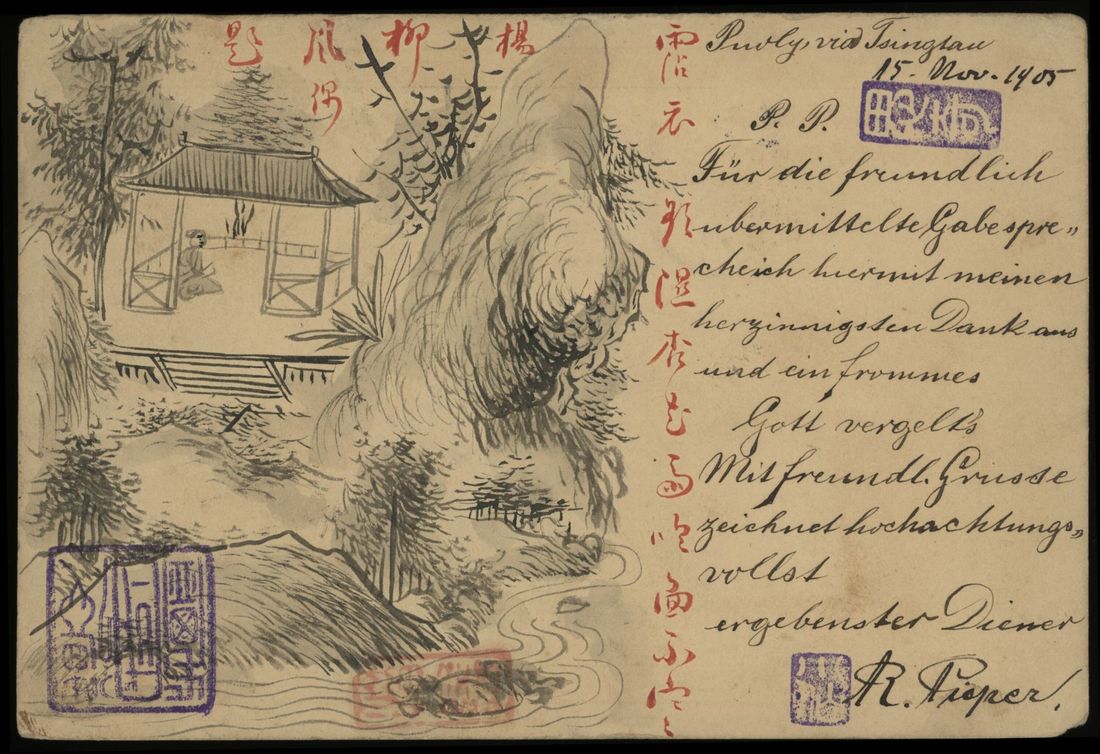 霑衣欲濕杏花雨吹面不寒
楊柳風偶題
Puoly, via Tsingtau
15. Nov. 1905
P. P.
Für die freundlich
übermittelte Gabe spre„
che ich hiermit meinen
herzinnigsten Dank aus
und ein frommes
Gott vergelt's
Mit freundl. Grusse
zeichnet hochachtungs„
vollst
ergebenster Diener
R. Pieper.